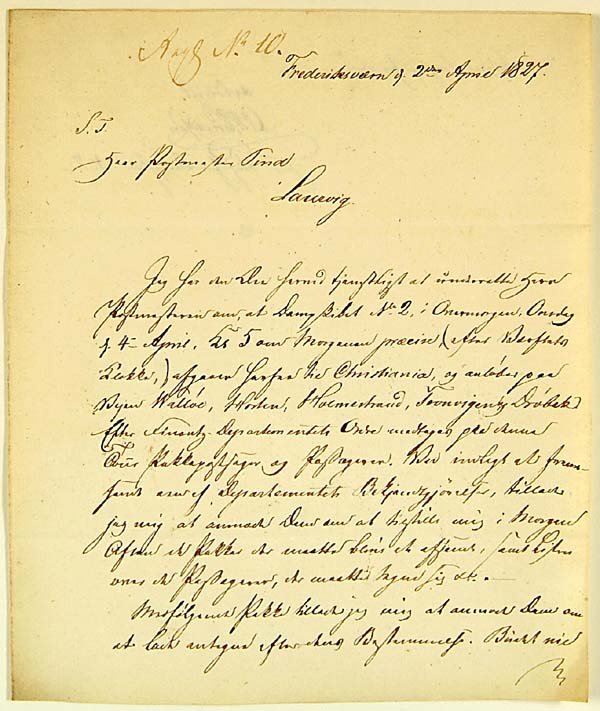 No 10.
Frederiksværn d. 2den April 1827.
S. T.
Herr Postmester Tind
Laurvig.
Jeg har den Ære herved tjenstligst at underrette Herr
Postmesteren om, at Dampskibet No 2, i Overmorgen, Onsdag
d. 4de April, Kl 5 om Morgenen præcise (efter Værftets
Klokke,) afgaaer herfra til Christiania, og anløber paa
Vejen Walløe, Horten, Holmestrand, Drøbak
Efter Finantz Departementets Ordre medtages paa denne
Tour Pakkepostsager og Passagerer. Ved indlagt at frem-
sende Departementets Bekjendtgjørelse, tillader
jeg mig at anmode Dem om at tilstille mig i Morgen
Aften de Pakker der maatte blive at afsende, samt Listen
over de Passagerer, der maatte tegne sig etc.
Medfølgende Pakke tillader jeg mig at anmode Dem om
at lade besørge efter dens Bestemmelse. Budet ved